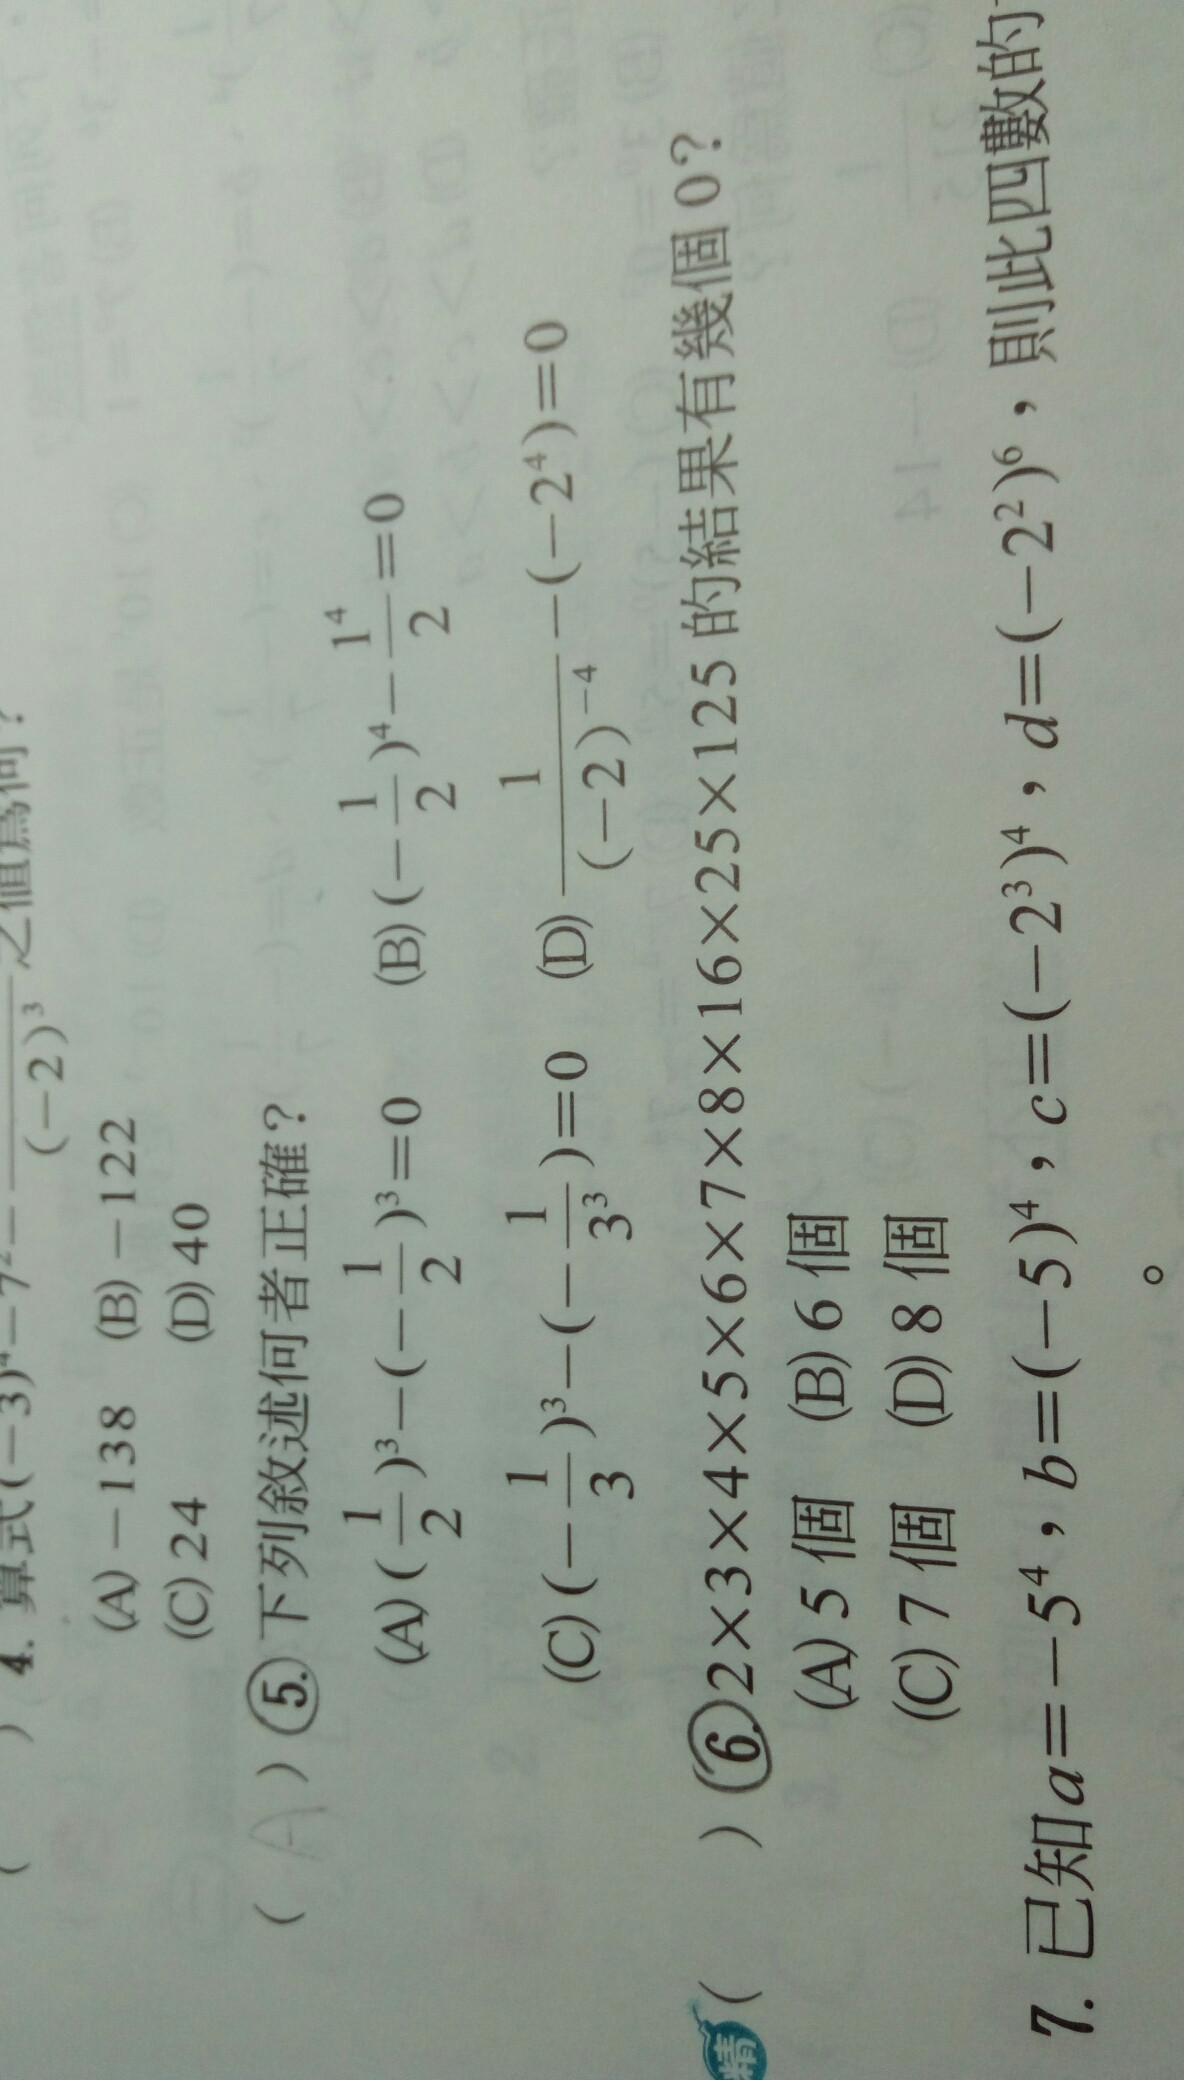 4. 算式(−3)⁴−7²−──/(−2)³之值為何?
(A)−138 (B)−122
(C)24 (D)40
(A) 5. 下列敘述何者正確?
(A)(1/2)³−(−1/2)³=0 (B)(−1/2)⁴−1⁴/2=0
(C)(−1/3)³−(−1/3³)=0 (D)1/(−2)⁻⁴−(−2⁴)=0
精( ) 6. 2×3×4×5×6×7×8×16×25×125的結果有幾個0?
(A)5個 (B)6個
(C)7個 (D)8個
7. 已知a=−5⁴,b=(−5)⁴,c=(−2³)⁴,d=(−2²)⁶,則此四數的
。